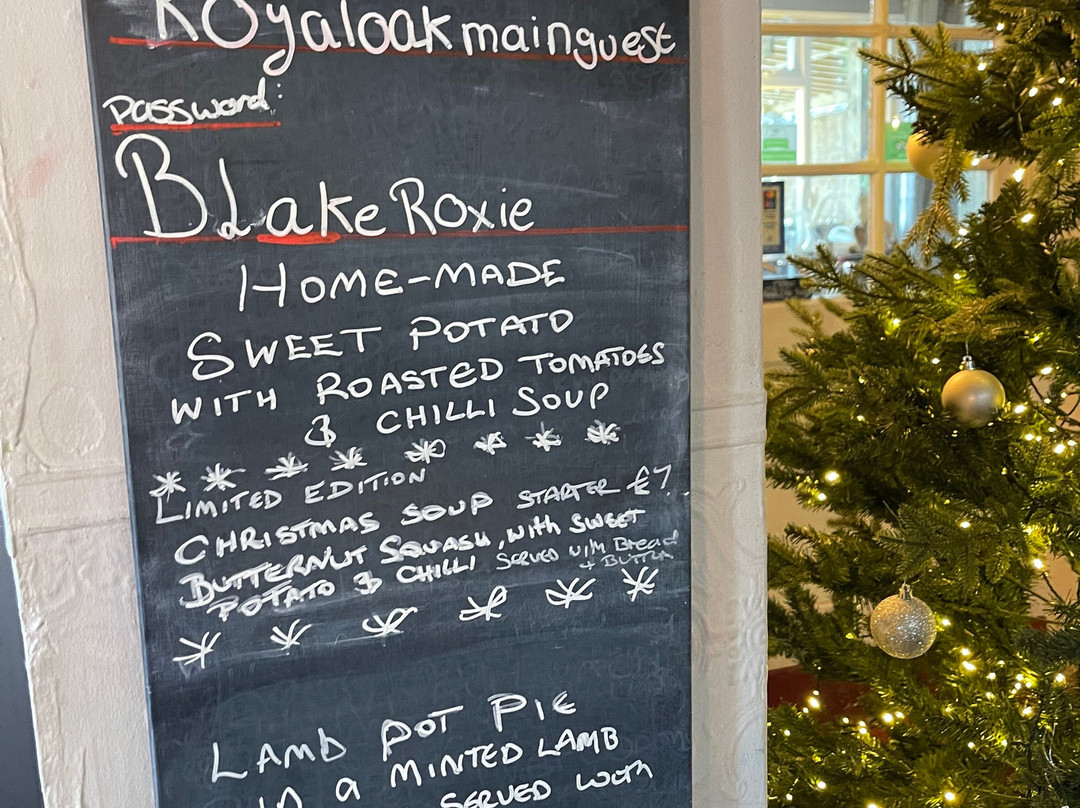 Royaloakmainguest
Password:
BLakeRoxie
HOME-MADE
SWEET POTATO
WITH ROASTED TOMATOES
& CHILLI SOUP
LIMITED EDITION
CHRISTMAS SOUP STARTER £7.
BUTTERNUT SQUASH, with SWEET
POTATO & CHILLI SERVED WITH Bread
+ BUTTER
LAMB POT PIE
IN a MINTED LAMB
SERVED WITH